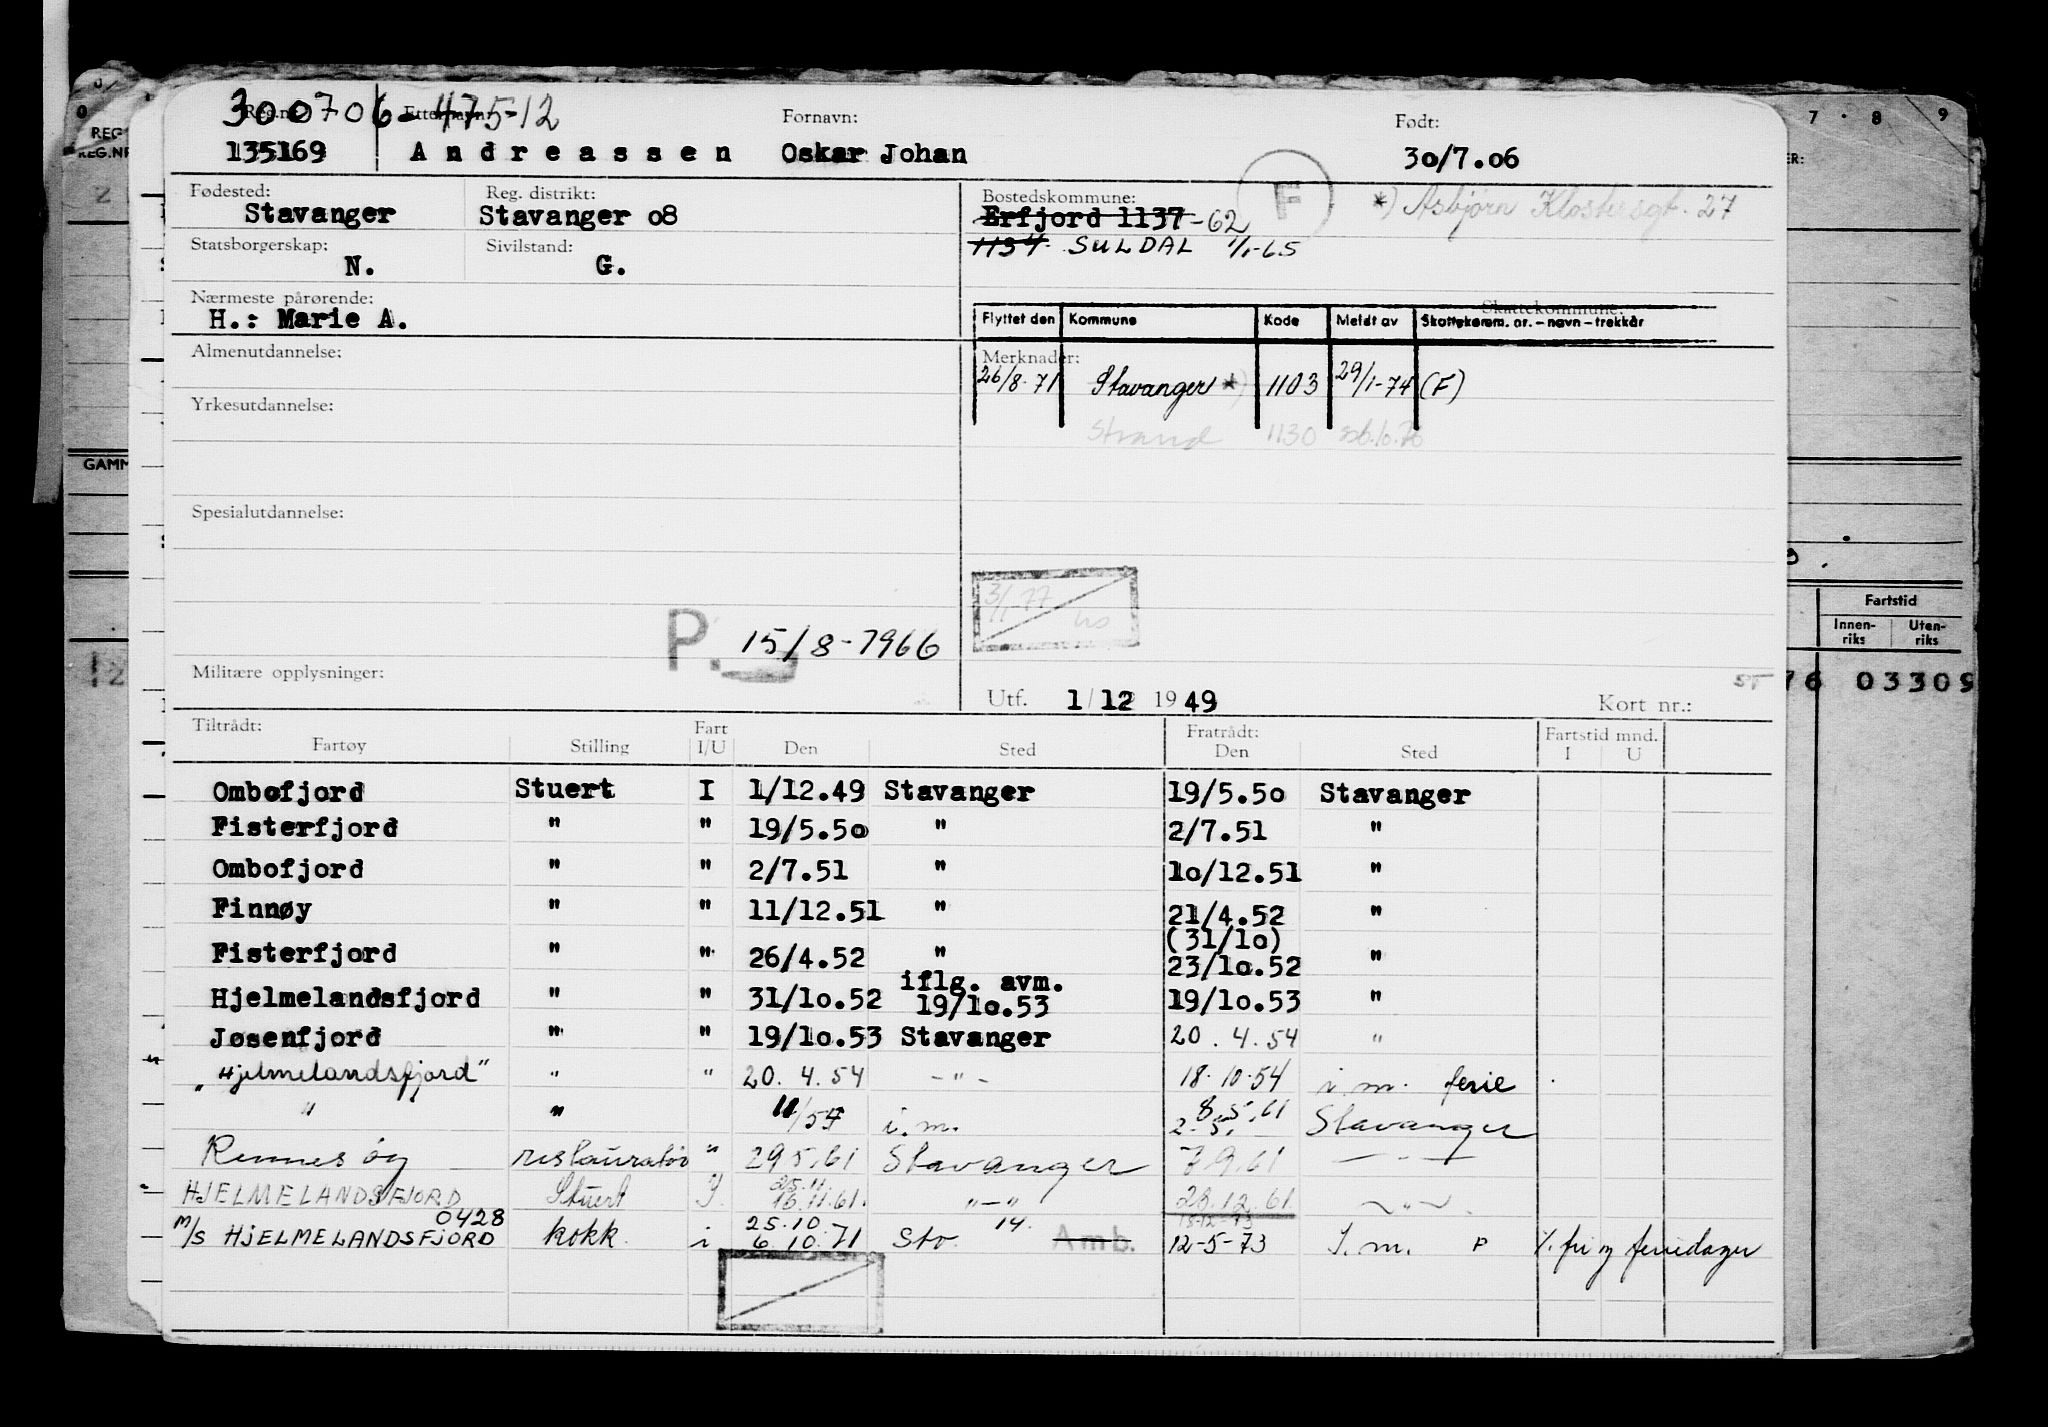 300706-475-12
Reg.nr. Etternavn: Fornavn: Født:
135169 Andreassen Oskar Johan 30/7.06
Fødested: Reg. distrikt: Bostedskommune: F *) Asbjørn Klostersgt. 27
Stavanger Stavanger o8 Erfjord 1137-62
Statsborgerskap: Sivilstand: 1134 SULDAL 1/1-65
N. G.
Nærmeste pårørende: Skattekommune:
H.: Marie A. Flyttet den Kommune Kode Meldt av Skattekomm. nr. – navn – trekkår
Almenutdannelse: Merknader:
26/8-71 Stavanger *) 1103 29/1-74 (F)
Yrkesutdannelse:
Strand 1130
Spesialutdannelse:
3/1-77
P. 15/8-1966
Militære opplysninger:
Utf. 1/12 1949 Kort nr.:
Tiltrådt: Fart Fratrådt: Fartstid mnd.
Fartøy Stilling I/U Den Sted Den Sted I U
Ombofjord Stuert I 1/12.49 Stavanger 19/5.5o Stavanger
Fisterfjord " " 19/5.5o " 2/7.51 "
Ombofjord " " 2/7.51 " 1o/12.51 "
Finnøy " " 11/12.51 " 21/4.52 "
(31/1o)
Fisterfjord " " 26/4.52 " 23/1o.52 "
iflg. avm.
Hjelmelandsfjord " " 31/1o.52 19/1o.53 19/1o.53 "
Jøsenfjord " " 19/1o.53 Stavanger 20.4.54 "
"Hjelmelandsfjord" " " 20.4.54 -"- 18.10.54 i.m. ferie
" " 11/54 i.m. 8.5.61 Stavanger
2.5.
Rennesøy restauratør " 29.5.61 Stavanger 7.9.61 -"-
25.11.
HJELMELANDSFJORD Stuert I. 16.11.61. "-" 28.12.61 -"-
0428 25.10 14. 18-12-73
M/S HJELMELANDSFJORD kokk. i 6.10.71 Sto. Amb. 12-5-73 I.m. P %. fri og feriedager
REG.NR
GAMM
7 8 9
Fartstid
Innen-riks Uten-riks
03309